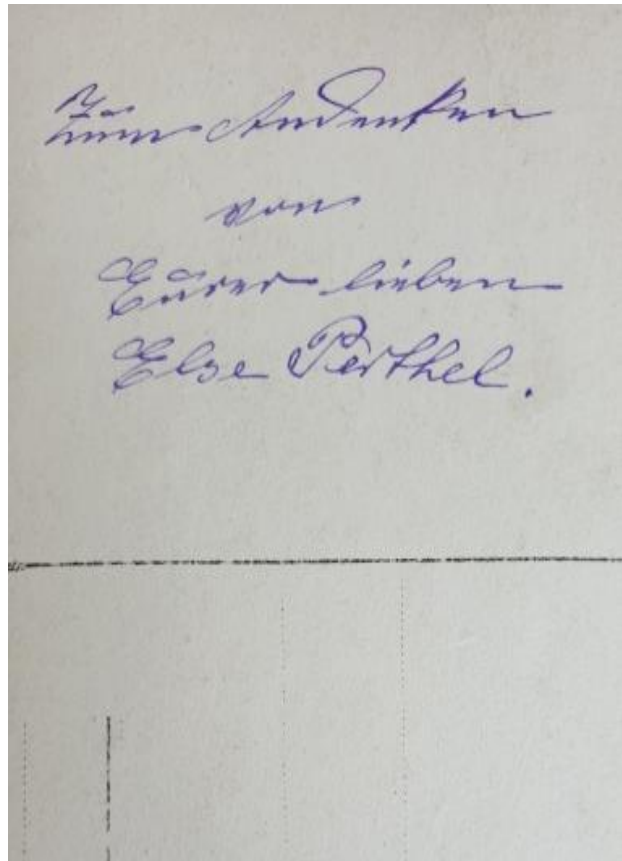 Zum Andenken
von
Eurer lieben
Else Perthel.